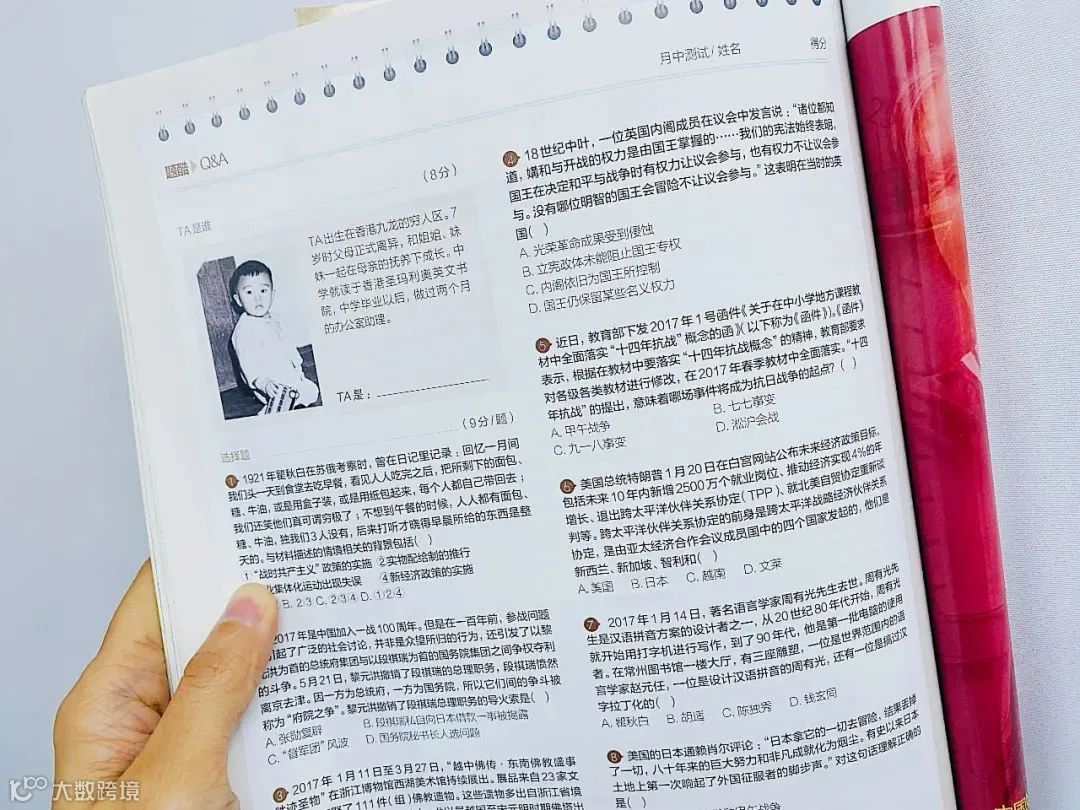 月中测试/姓名
得分
题酷 Q&A
(8分)
TA是谁
TA出生在香港九龙的穷人区。7
岁时父母正式离异,和姐姐、妹
妹一起在母亲的抚养下成长。中
学就读于香港圣玛利奥英文书
院,中学毕业以后,做过两个月
的办公室助理。
TA是:
(9分/题)
选择题
1 1921年瞿秋白在苏俄考察时,曾在日记里记录:回忆一月间
我们头一天到食堂去吃早餐,看见人人吃完之后,把所剩下的面包、
糖、牛油,或是用盒子装,或是用纸包起来,每个人都自己带回去;
我们还笑他们真可谓穷极了;不想到午餐的时候,人人都有面包、
糖、牛油,独我们3人没有,后来打听才晓得早晨所给的东西是整
天的。与材料描述的情境相关的背景包括( )
①“战时共产主义”政策的实施 ②实物配给制的推行
业集体化运动出现失误 ④新经济政策的实施
B.②③ C.②③④ D.①②④
2017年是中国加入一战100周年。但是在一百年前,参战问题
引起了广泛的社会讨论,并非是众望所归的行为,还引发了以黎
元洪为首的总统府集团与以段祺瑞为首的国务院集团之间争权夺利
的斗争。5月21日,黎元洪撤销了段祺瑞的总理职务,段祺瑞愤然
离京去津。因一方为总统府,一方为国务院,所以它们间的争斗被
称为“府院之争”。黎元洪撤销了段祺瑞总理职务的导火索是( )
A. 张勋复辟 B. 段祺瑞私自向日本借款一事被揭露
C. “督军团”风波 D. 国务院秘书长人选问题
3 2017年1月11日至3月27日,“越中佛传·东南佛教盛事
胜迹圣物”在浙江博物馆西湖美术馆持续展出。展品来自23家文
了111件(组)佛教遗物。这些遗物多出自浙江省境
4 18世纪中叶,一位英国内阁成员在议会中发言说:“诸位都知
道,媾和与开战的权力是由国王掌握的……我们的宪法始终表明,
国王在决定和平与战争时有权力让议会参与,也有权力不让议会参
与。没有哪位明智的国王会冒险不让议会参与。”这表明在当时的英
国( )
A. 光荣革命成果受到侵蚀
B. 立宪政体未能阻止国王专权
C. 内阁依旧为国王所控制
D. 国王仍保留某些名义权力
5 近日,教育部下发2017年1号函件《关于在中小学地方课程教
材中全面落实“十四年抗战”概念的函》(以下称为《函件》)。《函件》
表示,根据在教材中要落实“十四年抗战概念”的精神,教育部要求
对各级各类教材进行修改,在2017年春季教材中全面落实。“十四
年抗战”的提出,意味着哪场事件将成为抗日战争的起点?( )
A. 甲午战争 B. 七七事变
C. 九一八事变 D. 淞沪会战
6 美国总统特朗普1月20日在白宫网站公布未来经济政策目标,
包括未来10年内新增2500万个就业岗位、推动经济实现4%的年
增长、退出跨太平洋伙伴关系协定(TPP)、就北美自贸协定重新谈
判等。跨太平洋伙伴关系协定的前身是跨太平洋战略经济伙伴关系
协定,是由亚太经济合作会议成员国中的四个国家发起的,他们是
新西兰、新加坡、智利和( )
A. 美国 B. 日本 C. 越南 D. 文莱
7 2017年1月14日,著名语言学家周有光先生去世。周有光先
生是汉语拼音方案的设计者之一,从20世纪80年代开始,周有光
就开始用打字机进行写作,到了90年代,他是第一批电脑的使用
者。在常州图书馆一楼大厅,有三座雕塑,一位是世界范围内的语
言学家赵元任,一位是设计汉语拼音的周有光,还有一位是搞过汉
字拉丁化的( )
A. 瞿秋白 B. 胡适 C. 陈独秀 D. 钱玄同
8 美国的日本通赖肖尔评论:“日本拿它的一切去冒险,结果丢掉
了一切,八十年来的巨大努力和非凡成就化为烟尘。有史以来日本
土地上第一次响起了外国征服者的脚步声。”对这句话理解正确的
是( )
大数跨境